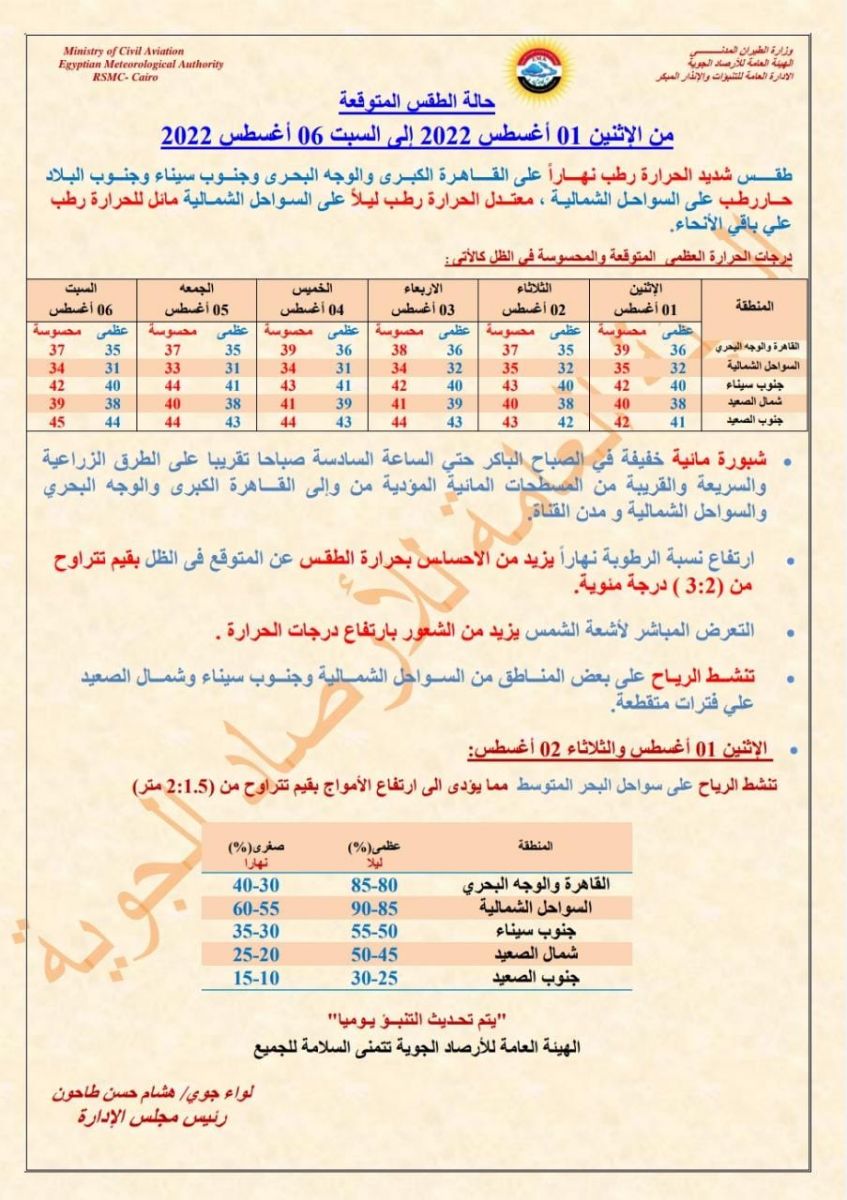 Ministry of Civil Aviation
Egyptian Meteorological Authority
RSMC- Cairo
وزارة الطيران المدنـــــي
الهيئة العامة للأرصاد الجوية
الادارة العامة للتنبؤات والإنذار المبكر
حالة الطقس المتوقعة
من الإثنين 01 أغسطس 2022 إلى السبت 06 أغسطس 2022
طقـــس شديد الحرارة رطب نهــاراً على القــاهـرة الكبـرى والوجه البحرى وجنـوب سيناء وجنــوب البـلاد
حــاررطـب على السواحـل الشماليـة ، معتــدل الحرارة رطـب ليـلاً على السـواحل الشمـاليـة مائل للحرارة رطب
علي باقي الأنحاء.
درجات الحرارة العظمى المتوقعة والمحسوسة فى الظل كالأتى:
المنطقة الإثنين الثلاثاء الاربعاء الخميس الجمعه السبت
01 أغسطس 02 أغسطس 03 أغسطس 04 أغسطس 05 أغسطس 06 أغسطس
عظمى محسوسة عظمى محسوسة عظمى محسوسة عظمى محسوسة عظمى محسوسة عظمى محسوسة
القاهرة والوجه البحري 36 39 35 37 36 38 36 39 35 37 35 37
السواحل الشمالية 32 35 32 35 32 34 31 34 31 33 31 34
جنوب سيناء 40 42 40 43 40 42 41 43 41 44 40 42
شمال الصعيد 38 40 38 40 39 41 39 41 38 40 38 39
جنوب الصعيد 41 42 42 43 43 44 43 44 43 44 44 45
• شبورة مائية خفيفة في الصباح الباكر حتي الساعة السادسة صباحا تقريبا على الطرق الزراعية
والسريعة والقريبة من المسطحات المائية المؤدية من وإلى القــاهرة الكبرى والوجه البحري
والسواحل الشمالية و مدن القناة.
• ارتفاع نسبة الرطوبة نهاراً يزيد من الاحساس بحرارة الطقس عن المتوقع فى الظل بقيم تتراوح
من (3:2 ) درجة مئوية.
• التعرض المباشر لأشعة الشمس يزيد من الشعور بارتفاع درجات الحرارة .
• تنشـط الريـاح على بعض المنــاطق من السـواحل الشمـالية وجنـوب سيناء وشمـال الصعيد
علي فترات متقطعة.
• الإثنين 01 أغسطس والثلاثاء 02 أغسطس:
تنشط الرياح على سواحل البحر المتوسط مما يؤدى الى ارتفاع الأمواج بقيم تتراوح من (2:1.5 متر)
المنطقة عظمى(%) صغرى(%)
ليلا نهارا
القاهرة والوجه البحري 85-80 40-30
السواحل الشمالية 90-85 60-55
جنوب سيناء 55-50 35-30
شمال الصعيد 50-45 25-20
جنوب الصعيد 30-25 15-10
"يتم تحـديث التنبــؤ يـوميا"
الهيئة العامة للأرصاد الجوية تتمنى السلامة للجميع
لواء جوي/ هشام حسن طاحون
رئيس مجلس الإدارة